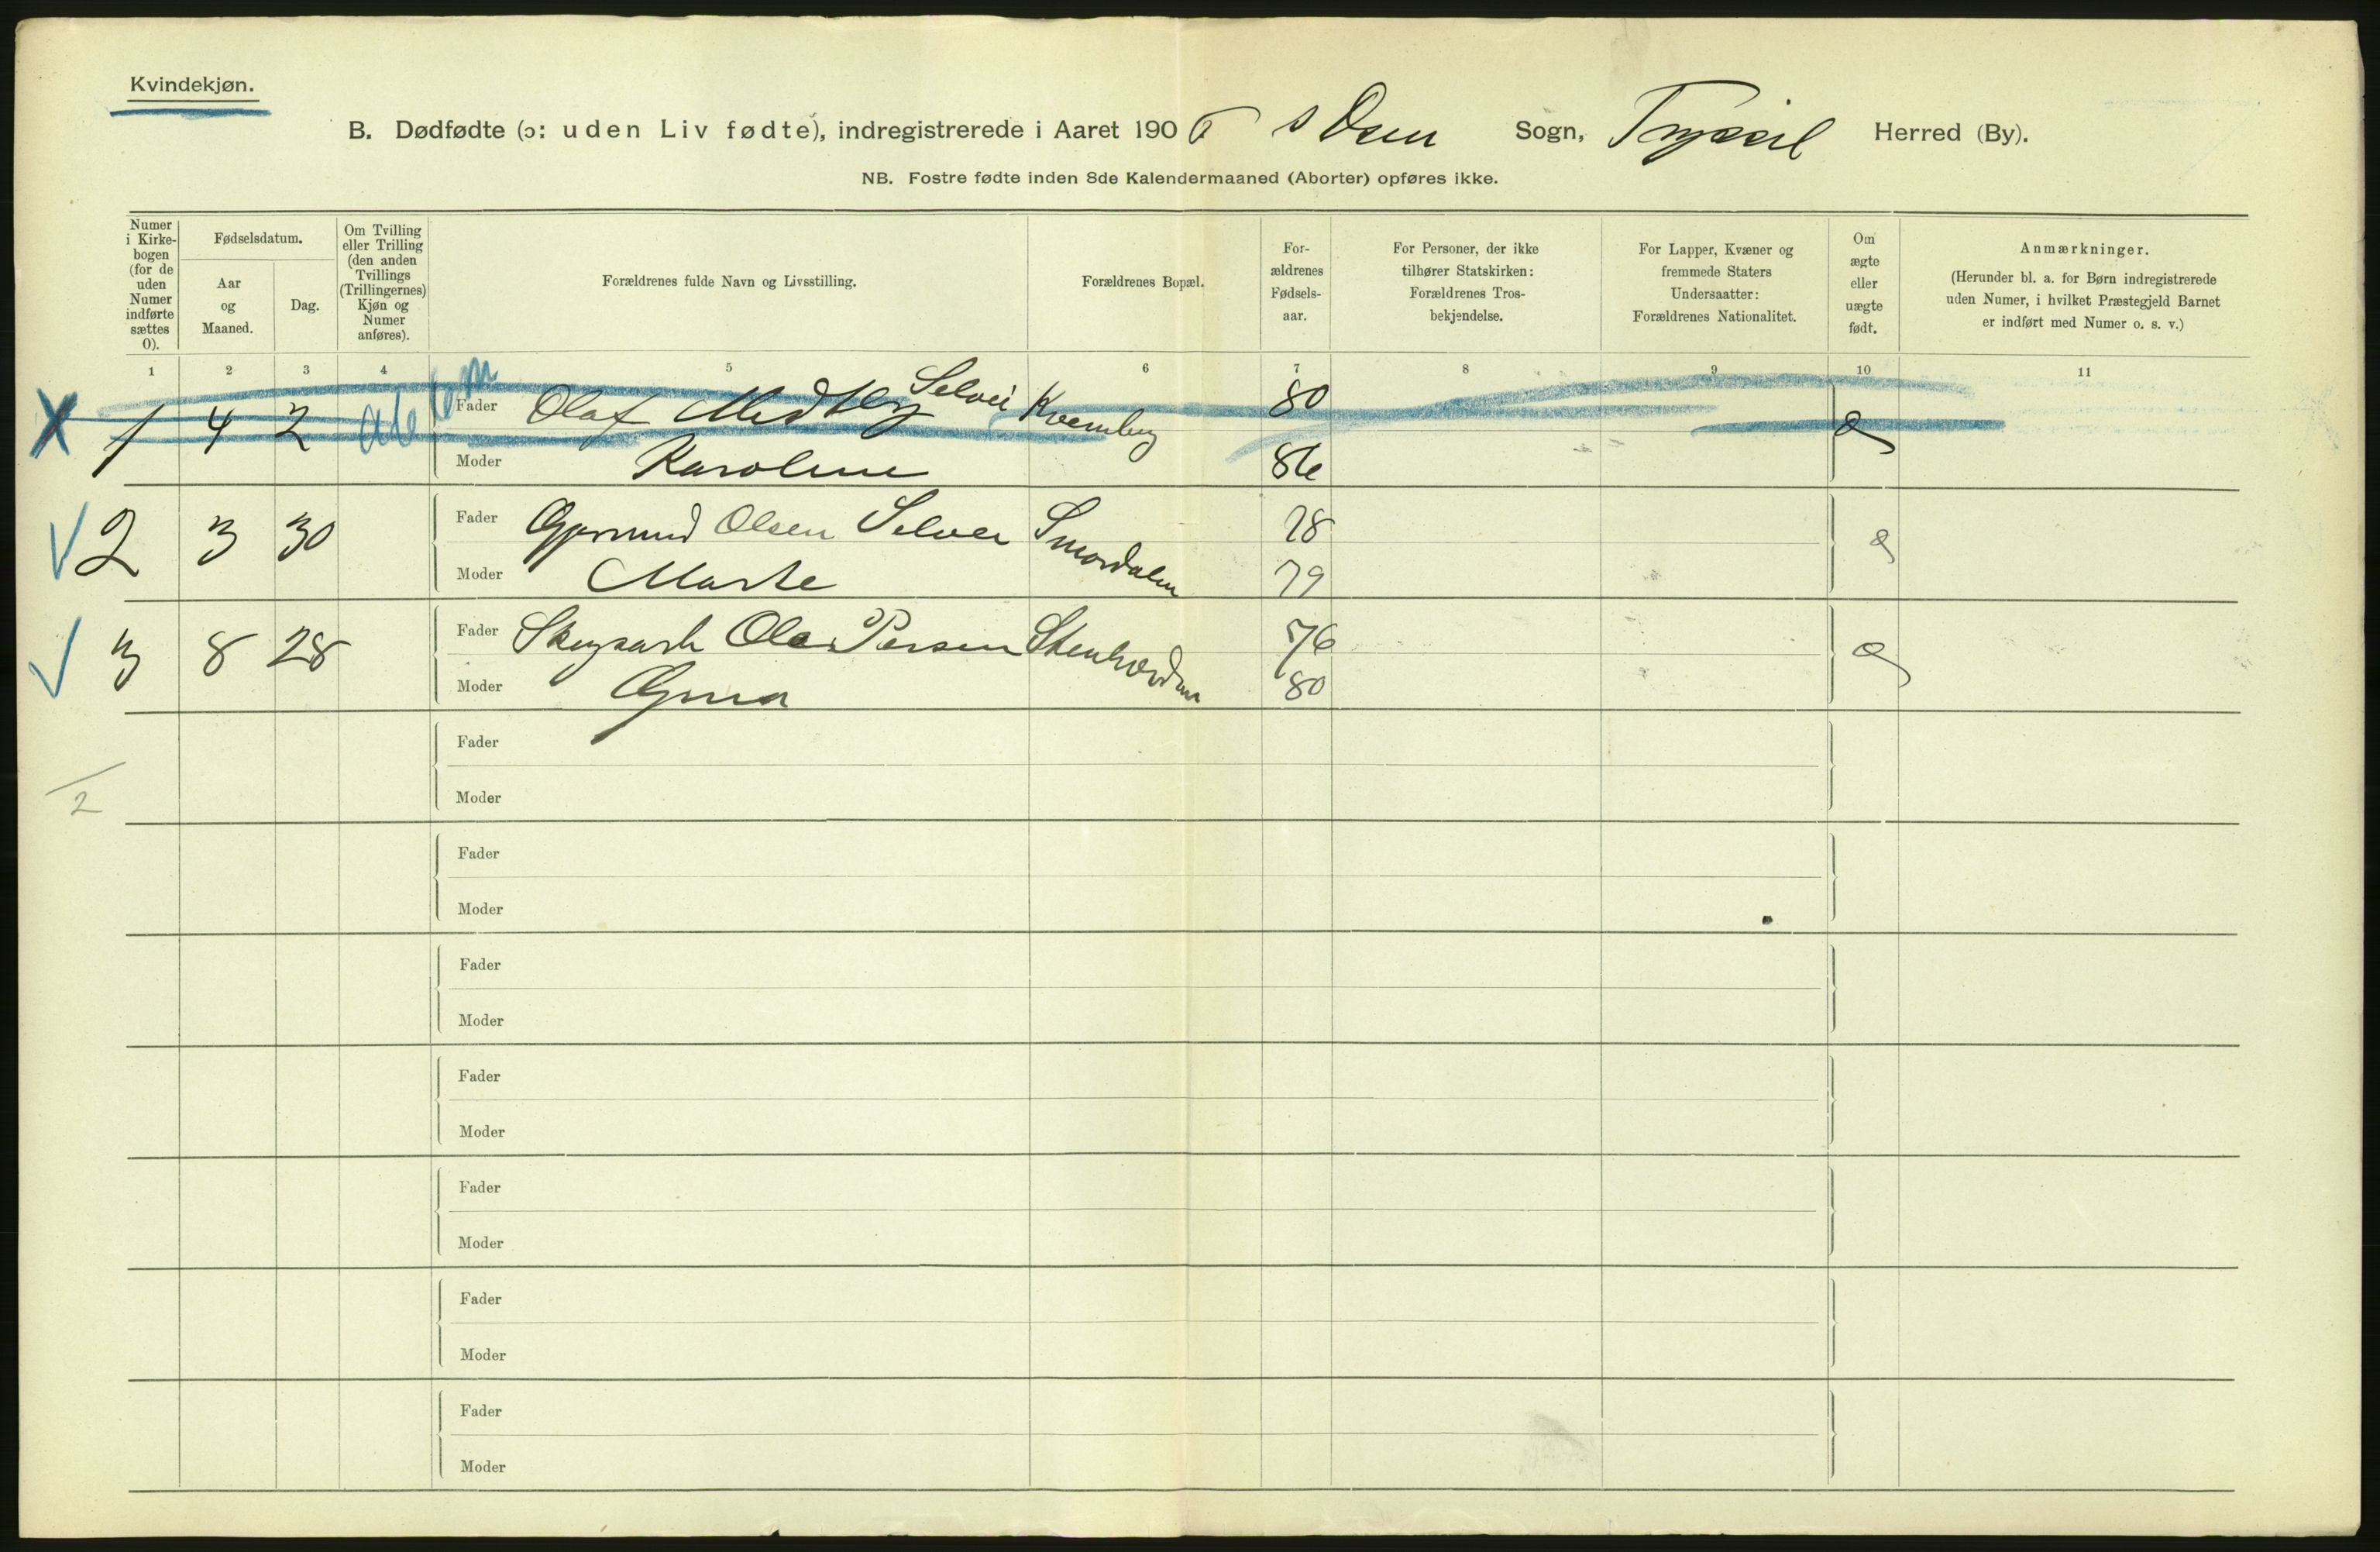 Kvindekjøn.
B. Dødfødte (ɔ: uden Liv fødte), indregistrerede i Aaret 190 s Osen Sogn, Trysil Herred (By).
NB. Fostre fødte inden 8de Kalendermaaned (Aborter) opføres ikke.
Numer i Kirkebogen (for de uden Numer indførte sættes 0).
Fødselsdatum.
Aar og Maaned.
Dag.
Om Tvilling eller Trilling (den anden Tvillings (Trillingernes) Kjøn og Numer anføres).
Forældrenes fulde Navn og Livsstilling.
Forældrenes Bopæl.
For-ældrenes Fødsels-aar.
For Personer, der ikke tilhører Statskirken: Forældrenes Tros-bekjendelse.
For Lapper, Kvæner og fremmede Staters Undersaatter: Forældrenes Nationalitet.
Om ægte eller uægte født.
Anmærkninger.
(Herunder bl. a. for Børn indregistrerede uden Numer, i hvilket Præstegjeld Barnet er indført med Numer o. s. v.)
1 2 3 4 5 6 7 8 9 10 11
1 4 2 Fader Olaf Selvei Kvernbug 80 æ
Moder Karoline 86
2 3 30 Fader Gjermund Olsen Selveier Smordalen 78 æ
Moder Marte 79
3 8 28 Fader Ole Persen 76 æ
Moder Gina 80
Fader
Moder
2
Fader
Moder
Fader
Moder
Fader
Moder
Fader
Moder
Fader
Moder
Fader
Moder